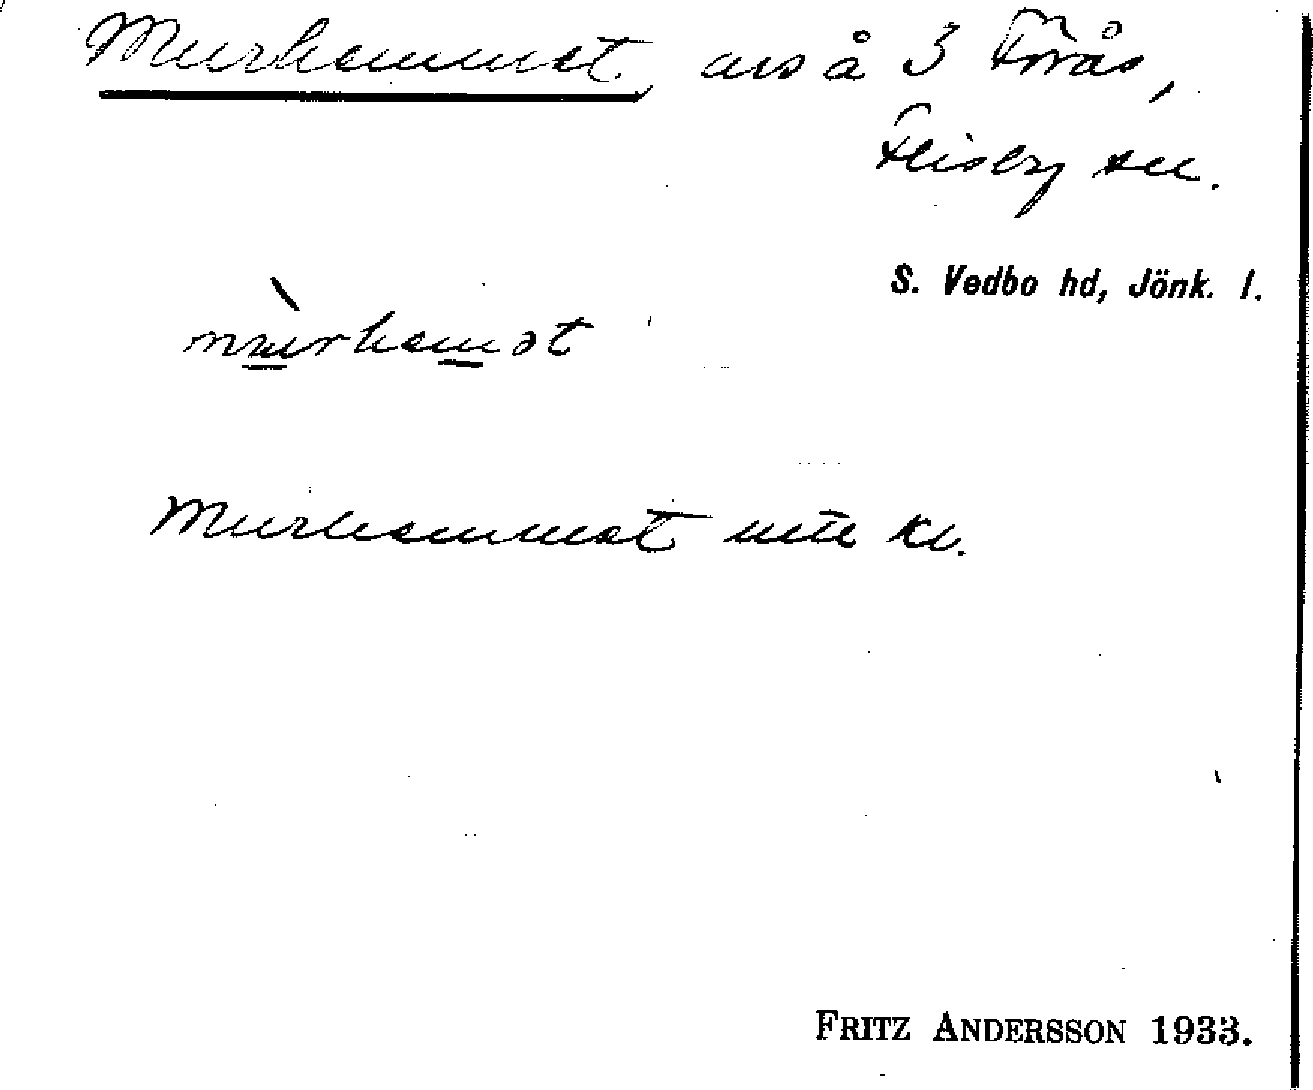 Murhemmet, avs å 3 Förås,
Flisby sn.
S. Vedbo hd, Jönk. l.
mùrhemət
Murhemmet
FRITZ ANDERSSON 1933.